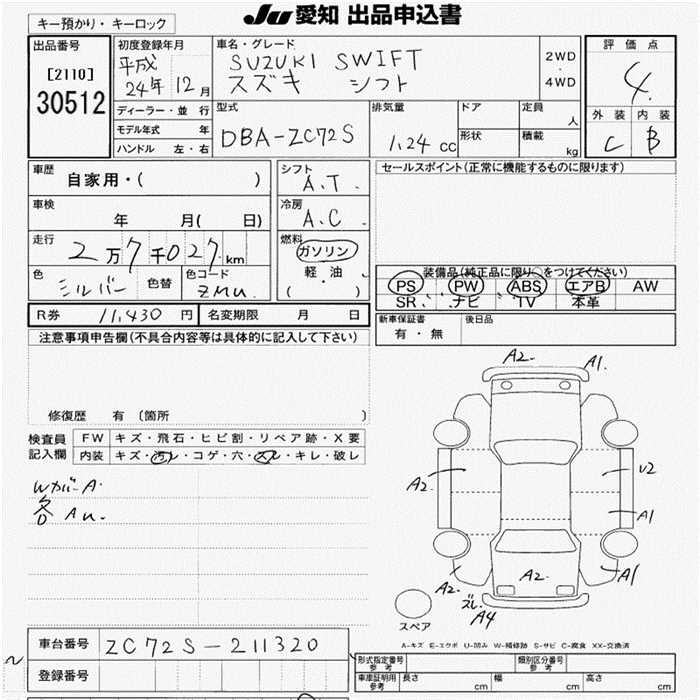 キー預かり・キーロック
JU 愛知 出品申込書
出品番号
[2110]
30512
初度登録年月
平成
24年 12月
ディーラー・並 行
モデル年式 年
ハンドル 左・右
車名・グレード
SUZUKI SWIFT
スズキ シフト
2WD
・
4WD
型式
DBA-ZC72S
排気量
1.24 cc
ドア
定員
人
形状
積載
kg
評価点
4
外装 内装
C B
車歴
自家用・( )
車検
年 月( 日)
走行
2万7千027km
色
シルバー
色替
色コード
ZMU.
シフト
A.T.
冷房
A.C
燃料
ガソリン
軽・油
( )
セールスポイント(正常に機能するものに限ります)
装備品(純正品に限り○をつけてください)
PS PW ABS エアB AW
SR ナビ TV 本革
R券 11,430 円
名変期限 月 日
新車保証書
有・無
後日品
注意事項申告欄(不具合内容等は具体的に記入して下さい)
修復歴 有 (箇所 )
検査員
記入欄
FW キズ・飛石・ヒビ割・リペア跡・X要
内装 キズ・汚レ・コゲ・穴・スレ・キレ・破レ
Wカバー A.
各 AU.
A2. A1.
A2. U2
A1
A2. A2. A1
ズレ A4
スペア
A-キズ E-エクボ U-凹み W-補修跡 S-サビ C-腐食 XX-交換済
車台番号 ZC72S-211320
登録番号
形式指定番号
参考
類別区分番号
参考
車庫証明用
参考
長さ cm 幅 cm 高さ cm